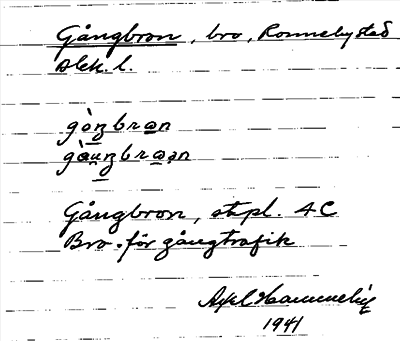 Gångbron, bro, Ronneby stad
Blek. l.
gòŋbron
gàuŋbroan
Gångbron, stpl. 4C
Bro för gångtrafik
Axel Hammelig
1941